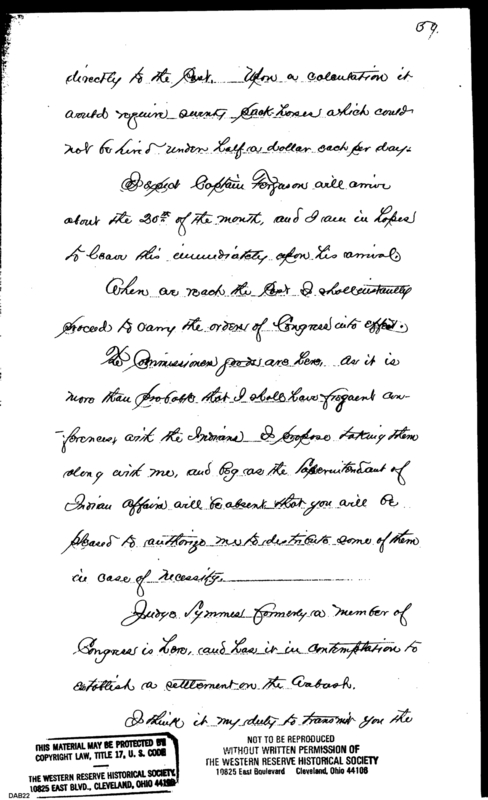 59.
directly to the Post. Upon a calculation it
would require seventy pack horses which could
not be hired under half a dollar each per day.
I expect Captain Ferguson will arrive
about the 20th of the month, and I am in hopes
to leave this immediately upon his arrival.
When we reach the Post I shall instantly
proceed to carry the orders of Congress into effect.
The Commissioners goods are here, as it is
more than probable that I shall have frequent con-
-ferences with the Indians I propose taking them
along with me, and beg as the Superintendant of
Indian affairs will be absent that you will be
pleased to authorize me to distribute some of them
in case of necessity.
Judge Symmes formerly a member of
Congress is here, and has it in contemplation to
establish a settlement on the Wabash.
I think it my duty to transmit you the
THIS MATERIAL MAY BE PROTECTED BY
COPYRIGHT LAW, TITLE 17, U. S. CODE
THE WESTERN RESERVE HISTORICAL SOCIETY
10825 EAST BLVD., CLEVELAND, OHIO 44106
NOT TO BE REPRODUCED
WITHOUT WRITTEN PERMISSION OF
THE WESTERN RESERVE HISTORICAL SOCIETY
10825 East Boulevard Cleveland, Ohio 44106
DAB22